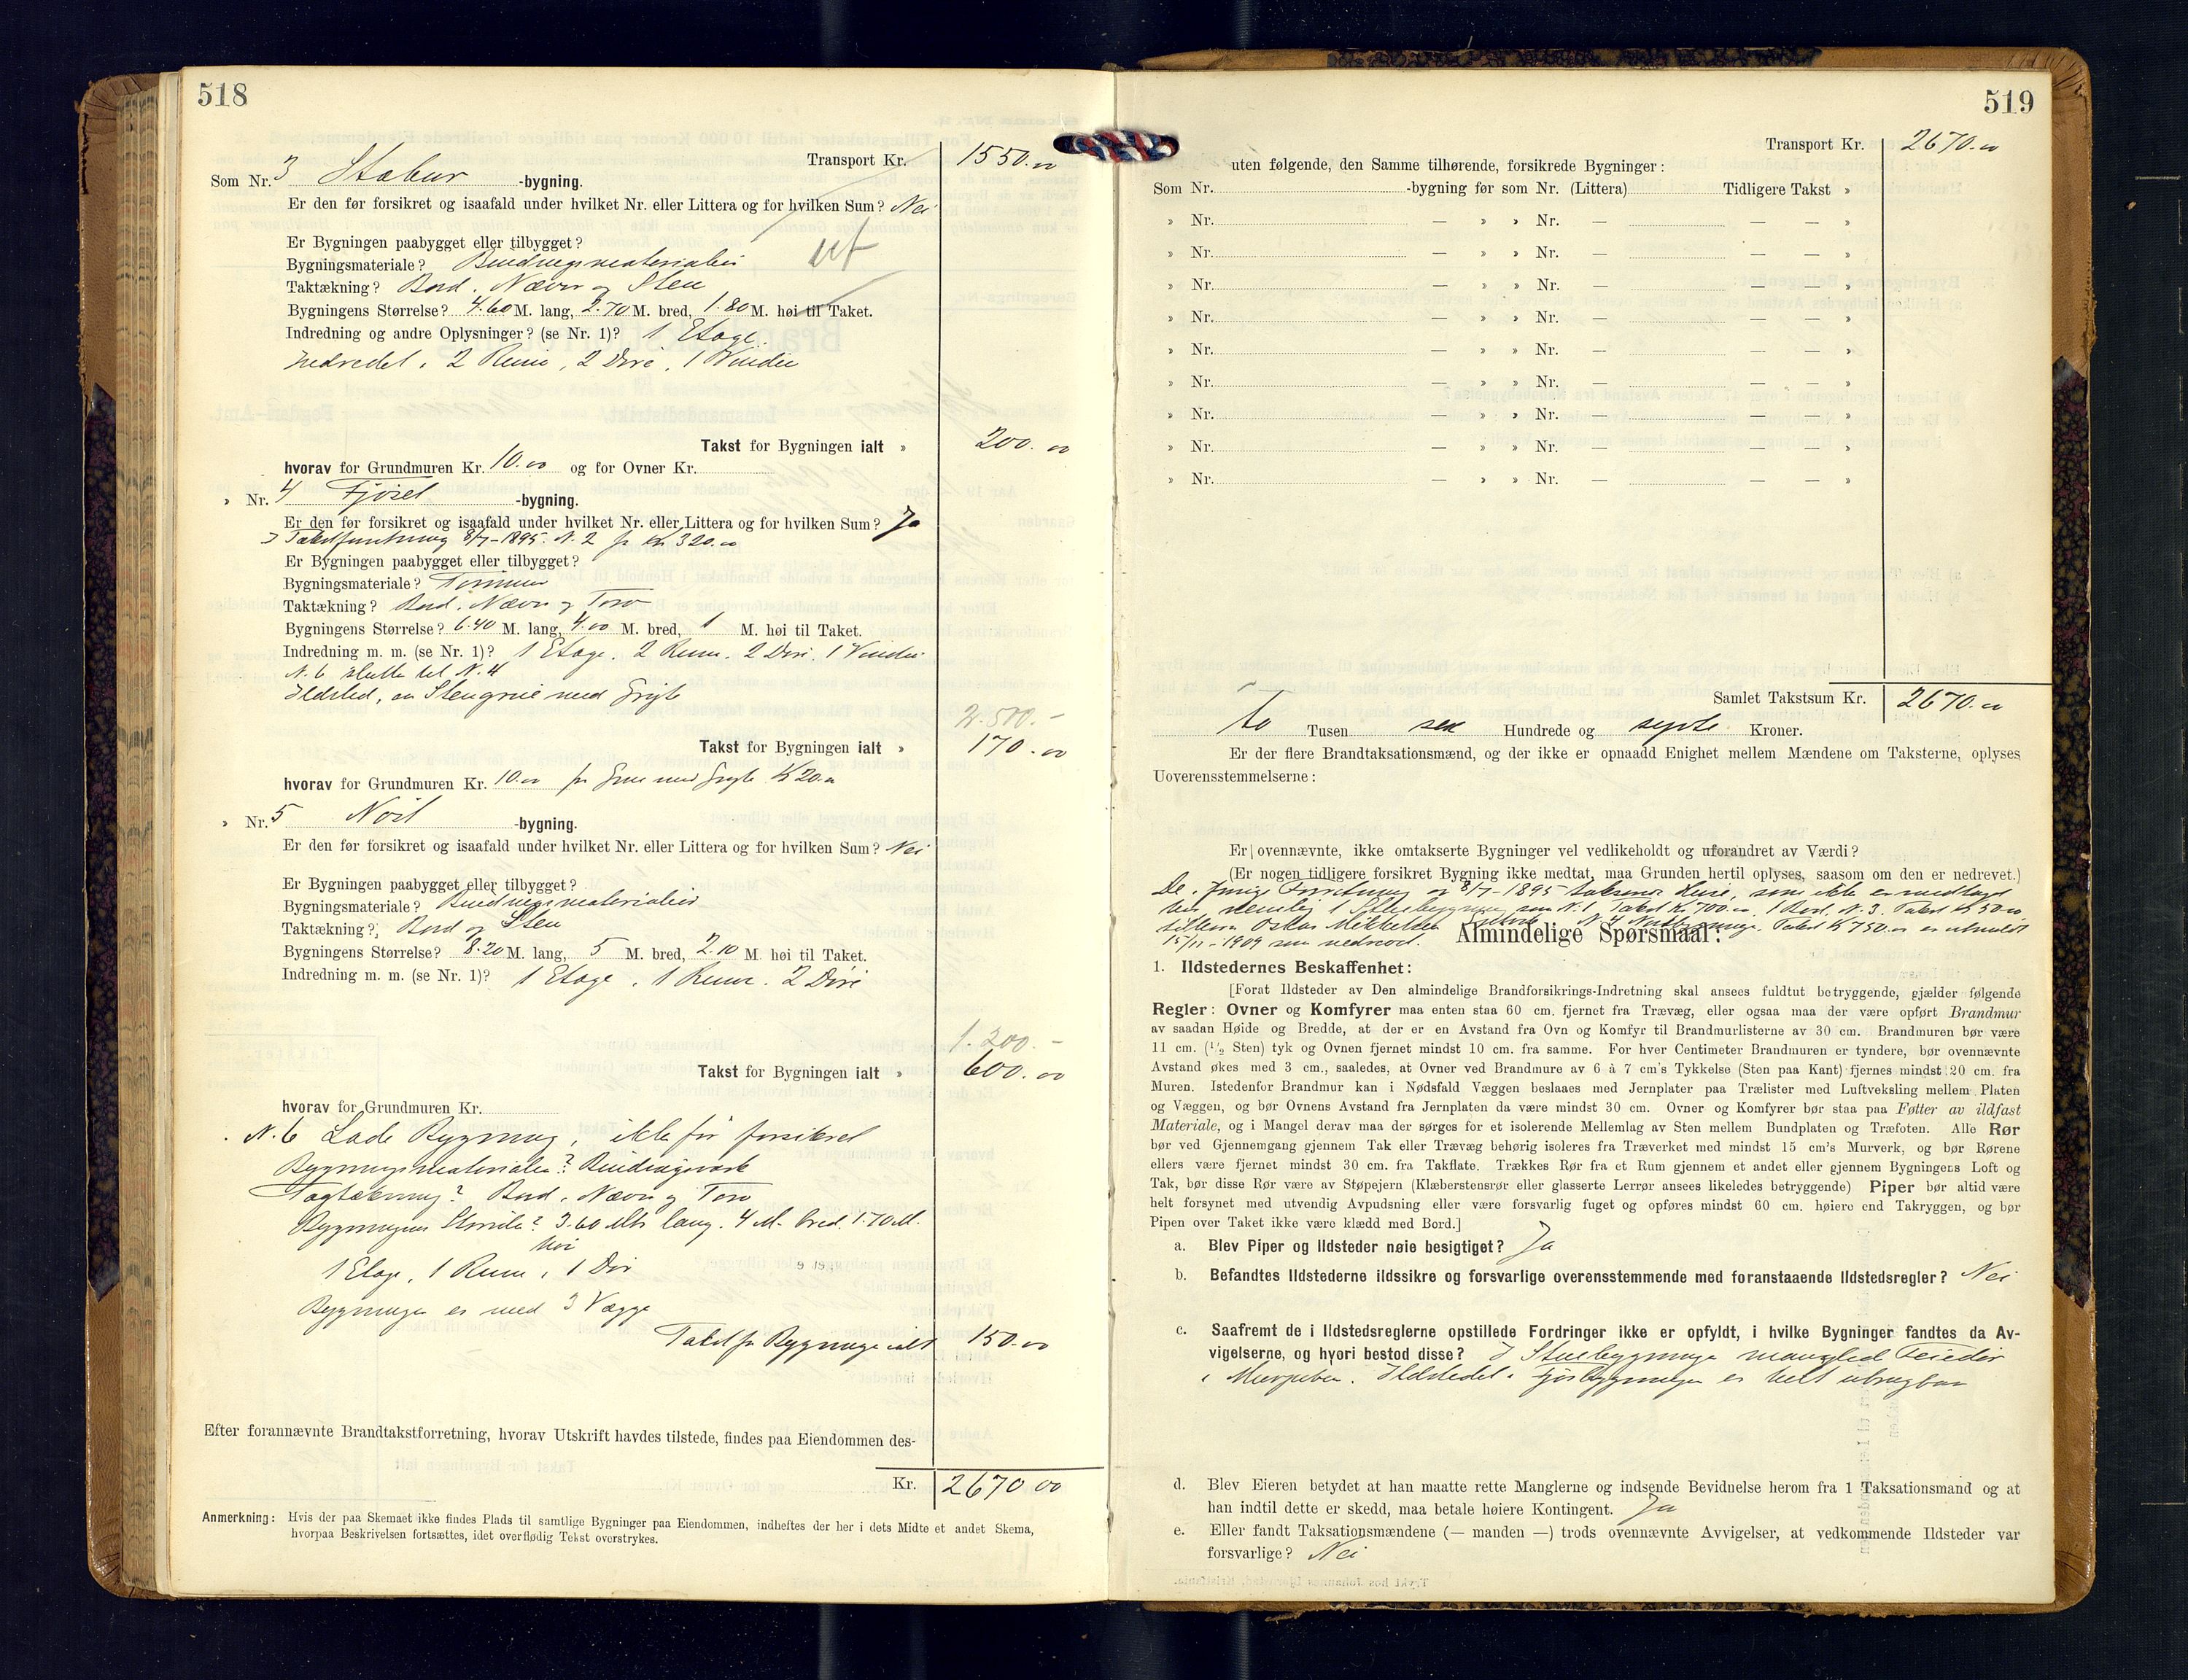 518
Transport Kr. 1550.00
Som Nr. 3 Stabur -bygning.
Er den før forsikret og isaafald under hvilket Nr. eller Littera og for hvilken Sum? Nei
Er Bygningen paabygget eller tilbygget?
ut
Bygningsmateriale? Bindingsmaterialer
Taktækning? Bord. Næver og Sten
Bygningens Størrelse? 4.60 M. lang, 2.70 M. bred, 1.80 M. høi til Taket.
Indredning og andre Oplysninger? (se Nr. 1)? 1 Etage.
Indredet. 2 Rum, 2 Døre, 1 Vindu
Takst for Bygningen ialt » 200.00
hvorav for Grundmuren Kr. 10.00 og for Ovner Kr.
» Nr. 4 Fjøset -bygning.
Er den før forsikret og isaafald under hvilket Nr. eller Littera og for hvilken Sum? Ja
Takstforretning 8/7-1895. N. 2 for Kr 320.00
Er Bygningen paabygget eller tilbygget?
Bygningsmateriale? Tømmer
Taktækning? Bord. Næver og Torv
Bygningens Størrelse? 6.40 M. lang, 4.00 M. bred, 1 M. høi til Taket.
Indredning m. m. (se Nr. 1)? 1 Etage. 2 Rum. 2 Døre. 1 Vindu
N. 6 slutter til N. 4
Ildsted, en Stengrue med Gryte
2.500.-
Takst for Bygningen ialt » 170.00
hvorav for Grundmuren Kr. 10.00 for Grue med Gryte Kr 20.00
» Nr. 5 Nøst -bygning.
Er den før forsikret og isaafald under hvilket Nr. eller Littera og for hvilken Sum? Nei
Er Bygningen paabygget eller tilbygget?
Bygningsmateriale? Bindingsmaterialer
Taktækning? Bord og Sten
Bygningens Størrelse? 8.20 M. lang, 5 M. bred, 2.10 M. høi til Taket.
Indredning m. m. (se Nr. 1)? 1 Etage, 1 Rum. 2 Døre
1.200.-
Takst for Bygningen ialt » 600.00
hvorav for Grundmuren Kr.
N. 6 Lade Bygning, ikke før forsikret
Bygningsmaterialer? Bindingsverk
Tagtækning? Bord, Næver og Torv
Bygningens Størrelse? 3.60 Mtr lang. 4 M. bred. 1.70 M.
høi
1 Etage, 1 Rum, 1 Dør
Bygningen er med 3 Vægge
Takst for Bygningen ialt 150.00
Efter forannævnte Brandtakstforretning, hvorav Utskrift havdes tilstede, findes paa Eiendommen des-
Kr. 2670 00
Anmerkning: Hvis der paa Skemaet ikke findes Plads til samtlige Bygninger paa Eiendommen, indheftes der her i dets Midte et andet Skema,
hvorpaa Beskrivelsen fortsættes, idet overflødig Tekst overstrykes.
519
Transport Kr. 2670.00
uten følgende, den Samme tilhørende, forsikrede Bygninger:
Som Nr. -bygning før som Nr. (Littera) Tidligere Takst »
» Nr. — » » Nr. — — — »
» Nr. — » » Nr. — — — »
» Nr. — » » Nr. — — — »
» Nr. — » » Nr. — — — »
» Nr. — » » Nr. — — — »
» Nr. — » » Nr. — — — »
» Nr. — » » Nr. — — — »
» Nr. — » » Nr. — — — »
» Nr. — » » Nr. — — — »
Samlet Takstsum Kr. 2670.00
To Tusen sex Hundrede og sytti Kroner.
Er der flere Brandtaksationsmænd, og der ikke er opnaadd Enighet mellem Mændene om Taksterne, oplyses
Uoverensstemmelserne:
Er ovennævnte, ikke omtakserte Bygninger vel vedlikeholdt og uforandret av Værdi?
(Er nogen tidligere forsikret Bygning ikke medtat, maa Grunden hertil oplyses, saasom om den er nedrevet.)
De i Forretning av 8/7-1895 takserte Huse, som ikke er medtaget
her nemlig 1 Stuebygning som N. 1, Takst Kr 700.00, 1 Bod. N. 3. Takst Kr 50.00,
Oskar Mikkelsen N. 4 Takst Kr 750.00 er utmeldt
15/11-1909 som nedrevet.
Almindelige Spørsmaal:
1. Ildstedernes Beskaffenhet:
[Forat Ildsteder av Den almindelige Brandforsikrings-Indretning skal ansees fuldtut betryggende, gjælder følgende
Regler: Ovner og Komfyrer maa enten staa 60 cm. fjernet fra Trævæg, eller ogsaa maa der være opført Brandmur
av saadan Høide og Bredde, at der er en Avstand fra Ovn og Komfyr til Brandmurlisterne av 30 cm. Brandmuren bør være
11 cm. (1/2 Sten) tyk og Ovnen fjernet mindst 10 cm. fra samme. For hver Centimeter Brandmuren er tyndere, bør ovennævnte
Avstand økes med 3 cm., saaledes, at Ovner ved Brandmure av 6 à 7 cm's Tykkelse (Sten paa Kant) fjernes mindst 20 cm. fra
Muren. Istedenfor Brandmur kan i Nødsfald Væggen beslaaes med Jernplater paa Trælister med Luftveksling mellem Platen
og Væggen, og bør Ovnens Avstand fra Jernplaten da være mindst 30 cm. Ovner og Komfyrer bør staa paa Føtter av ildfast
Materiale, og i Mangel derav maa der sørges for et isolerende Mellemlag av Sten mellem Bundplaten og Træfoten. Alle Rør
bør ved Gjennemgang gjennem Tak eller Trævæg behørig isoleres fra Træverket med mindst 15 cm's Murverk, og bør Rørene
ellers være fjernet mindst 30 cm. fra Takflate. Trækkes Rør fra et Rum gjennem et andet eller gjennem Bygningens Loft og
Tak, bør disse Rør være av Støpejern (Klæberstensrør eller glasserte Lerrør ansees likeledes betryggende) Piper bør altid være
helt forsynet med utvendig Avpudsning eller være forsvarlig fuget og opføres mindst 60 cm. høiere end Takryggen, og bør
Pipen over Taket ikke være klædd med Bord.]
a. Blev Piper og Ildsteder nøie besigtiget? Ja
b. Befandtes Ildstederne ildssikre og forsvarlige overensstemmende med foranstaaende Ildstedsregler? Nei
c. Saafremt de i Ildstedsreglerne opstillede Fordringer ikke er opfyldt, i hvilke Bygninger fandtes da Av-
vigelserne, og hvori bestod disse? I Stuebygningen mangled Feiedør
i Murpiben. Ildstedet i Fjøsbygningen er helt ubrugbar
d. Blev Eieren betydet at han maatte rette Manglerne og indsende Bevidnelse herom fra 1 Taksationsmand og at
han indtil dette er skedd, maa betale høiere Kontingent. Ja
e. Eller fandt Taksationsmændene (— manden —) trods ovennævnte Avvigelser, at vedkommende Ildsteder var
forsvarlige? Nei